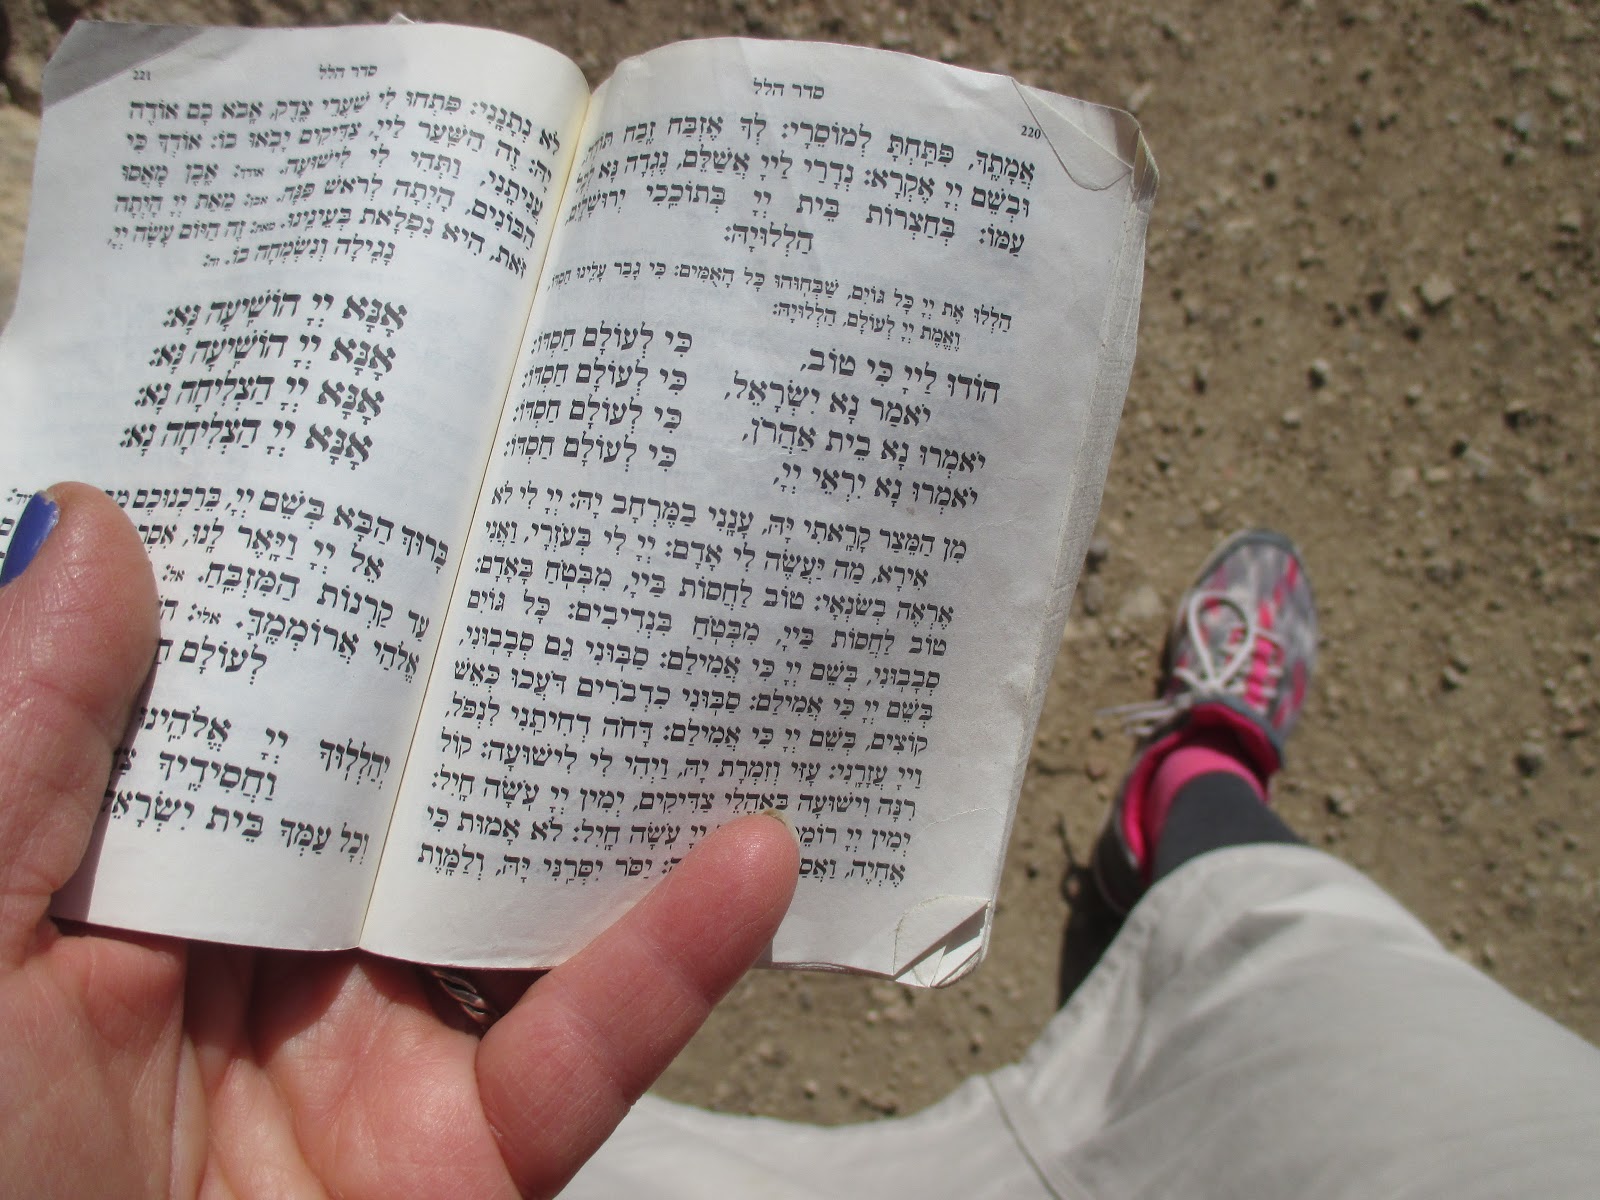 220
סדר הלל
אֲמָתֶךָ, פִּתַּחְתָּ לְמוֹסֵרָי: לְךָ אֶזְבַּח זֶבַח
וּבְשֵׁם יְיָ אֶקְרָא: נְדָרַי לַייָ אֲשַׁלֵּם, נֶגְדָה נָּא
עַמּוֹ: בְּחַצְרוֹת בֵּית יְיָ בְּתוֹכֵכִי יְרוּשָׁלָיִם,
הַלְלוּיָהּ:
הַלְלוּ אֶת יְיָ כָּל גּוֹיִם, שַׁבְּחוּהוּ כָּל הָאֻמִּים: כִּי גָבַר עָלֵינוּ חַסְדּוֹ,
וֶאֱמֶת יְיָ לְעוֹלָם, הַלְלוּיָהּ:
הוֹדוּ לַייָ כִּי טוֹב, כִּי לְעוֹלָם חַסְדּוֹ:
יֹאמַר נָא יִשְׂרָאֵל, כִּי לְעוֹלָם חַסְדּוֹ:
יֹאמְרוּ נָא בֵית אַהֲרֹן, כִּי לְעוֹלָם חַסְדּוֹ:
יֹאמְרוּ נָא יִרְאֵי יְיָ, כִּי לְעוֹלָם חַסְדּוֹ:
מִן הַמֵּצַר קָרָאתִי יָּהּ, עָנָנִי בַמֶּרְחָב יָהּ: יְיָ לִי לֹא
אִירָא, מַה יַּעֲשֶׂה לִי אָדָם: יְיָ לִי בְּעֹזְרָי, וַאֲנִי
אֶרְאֶה בְשֹׂנְאָי: טוֹב לַחֲסוֹת בַּייָ, מִבְּטֹחַ בָּאָדָם:
טוֹב לַחֲסוֹת בַּייָ, מִבְּטֹחַ בִּנְדִיבִים: כָּל גּוֹיִם
סְבָבוּנִי, בְּשֵׁם יְיָ כִּי אֲמִילַם: סַבּוּנִי גַם סְבָבוּנִי,
בְּשֵׁם יְיָ כִּי אֲמִילַם: סַבּוּנִי כִדְבֹרִים דֹּעֲכוּ כְּאֵשׁ
קוֹצִים, בְּשֵׁם יְיָ כִּי אֲמִילַם: דָּחֹה דְחִיתַנִי לִנְפֹּל,
וַייָ עֲזָרָנִי: עָזִּי וְזִמְרָת יָהּ, וַיְהִי לִי לִישׁוּעָה: קוֹל
רִנָּה וִישׁוּעָה בְּאָהֳלֵי צַדִּיקִים, יְמִין יְיָ עֹשָׂה חָיִל:
יְמִין יְיָ יְיָ עֹשָׂה חָיִל: לֹא אָמוּת כִּי
אֶחְיֶה, יַסֹּר יִסְּרַנִּי יָּהּ, וְלַמָּוֶת
221
סדר הלל
לֹא נְתָנָנִי: פִּתְחוּ לִי שַׁעֲרֵי צֶדֶק, אָבֹא בָם אוֹדֶה
יָהּ: זֶה הַשַּׁעַר לַייָ, צַדִּיקִים יָבֹאוּ בוֹ: אוֹדְךָ כִּי
עֲנִיתָנִי, וַתְּהִי לִי לִישׁוּעָה. אודך: אֶבֶן מָאֲסוּ
הַבּוֹנִים, הָיְתָה לְרֹאשׁ פִּנָּה. אבן: מֵאֵת יְיָ הָיְתָה
זֹּאת, הִיא נִפְלָאת בְּעֵינֵינוּ. מאת: זֶה הַיּוֹם עָשָׂה יְיָ,
נָגִילָה וְנִשְׂמְחָה בוֹ. זה:
אָנָּא יְיָ הוֹשִׁיעָה נָּא:
אָנָּא יְיָ הוֹשִׁיעָה נָּא:
אָנָּא יְיָ הַצְלִיחָה נָּא:
אָנָּא יְיָ הַצְלִיחָה נָּא:
בָּרוּךְ הַבָּא בְּשֵׁם יְיָ, בֵּרַכְנוּכֶם
אֵל יְיָ וַיָּאֶר לָנוּ,
עַד קַרְנוֹת הַמִּזְבֵּחַ. אל:
אֱלֹהַי אֲרוֹמְמֶךָּ. אלי:
לְעוֹלָם
יְהַלְלוּךָ יְיָ אֱלֹהֵינוּ
וַחֲסִידֶיךָ
וְכָל עַמְּךָ בֵּית יִשְׂרָאֵל